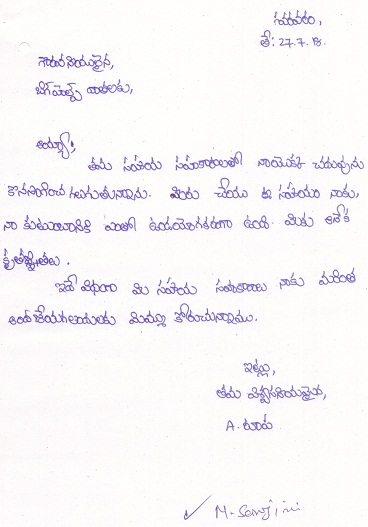 సమవరం,
తే: 27.7.18.
గౌరవనీయులైన,
బిగ్‌హెల్ప్ దాతలకు,
అయ్యా,
తమ సహాయ సహకారాలతో నాయొక్క చదువును
కొనసాగించ గలుగుతున్నాను. మీరు చేయు ఈ సహాయం నాకు,
నా కుటుంబానికి ఎంతో ఉపయోగకరంగా ఉంది. మీకు అనేక
కృతజ్ఞతలు.
ఇదే విధంగా మీ సహాయ సహకారాలు నాకు మరింత
అందజేయగలందులకు మిమ్ము కోరుచున్నాము.
ఇట్లు,
తమ విశ్వసనీయమైన,
A. రూప
M. Sarojini